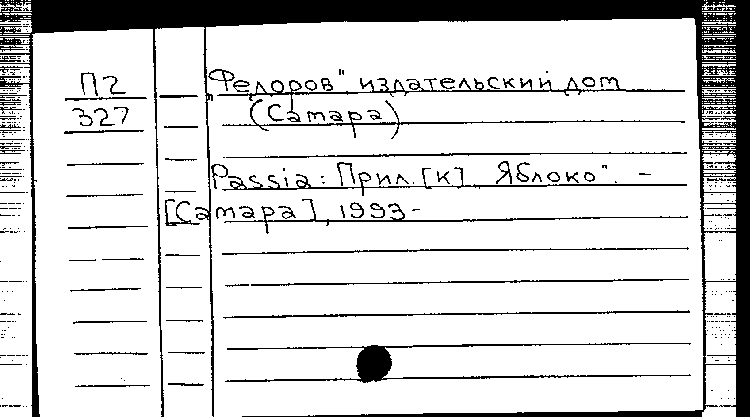 П2
327
„Федоров" издательский дом
(Самара)
Passia: Прил. [к] „Яблоко". -
[Самара], 1993-